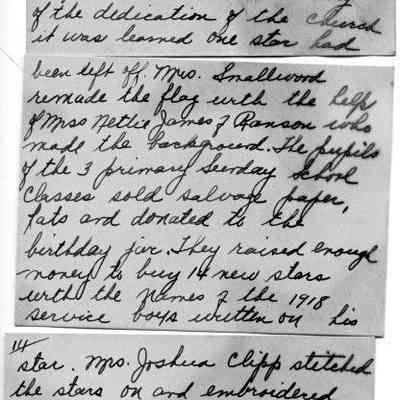 of the dedication of the church
it was learned one star had
been left off. Mrs. Smallwood
remade the flag with the help
of Miss Nettie James of Ranson who
made the background. The pupils
of the 3 primary Sunday School
Classes sold salvage paper,
fats and donated to the
birthday jar. They raised enough
money to buy 14 new stars
with the names of the 1918
service boys written on his
14
star. Mrs. Joshua Clipp stitched
the stars on and embroidered